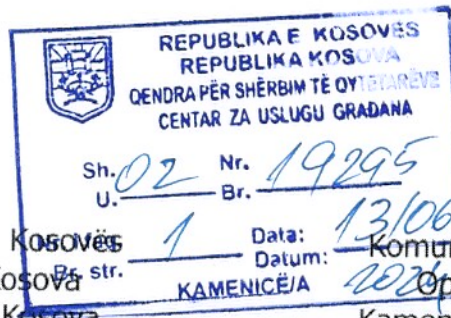 REPUBLIKA E KOSOVËS
REPUBLIKA KOSOVA
QENDRA PËR SHËRBIM TË QYTETARËVE
CENTAR ZA USLUGU GRAĐANA
Sh. 02 Nr. 19295
U. Br.
Kosovës 1 Data: 13/06 Komun
Kosova str. Datum: 2024 Op
Kosova KAMENICË/A Kamen